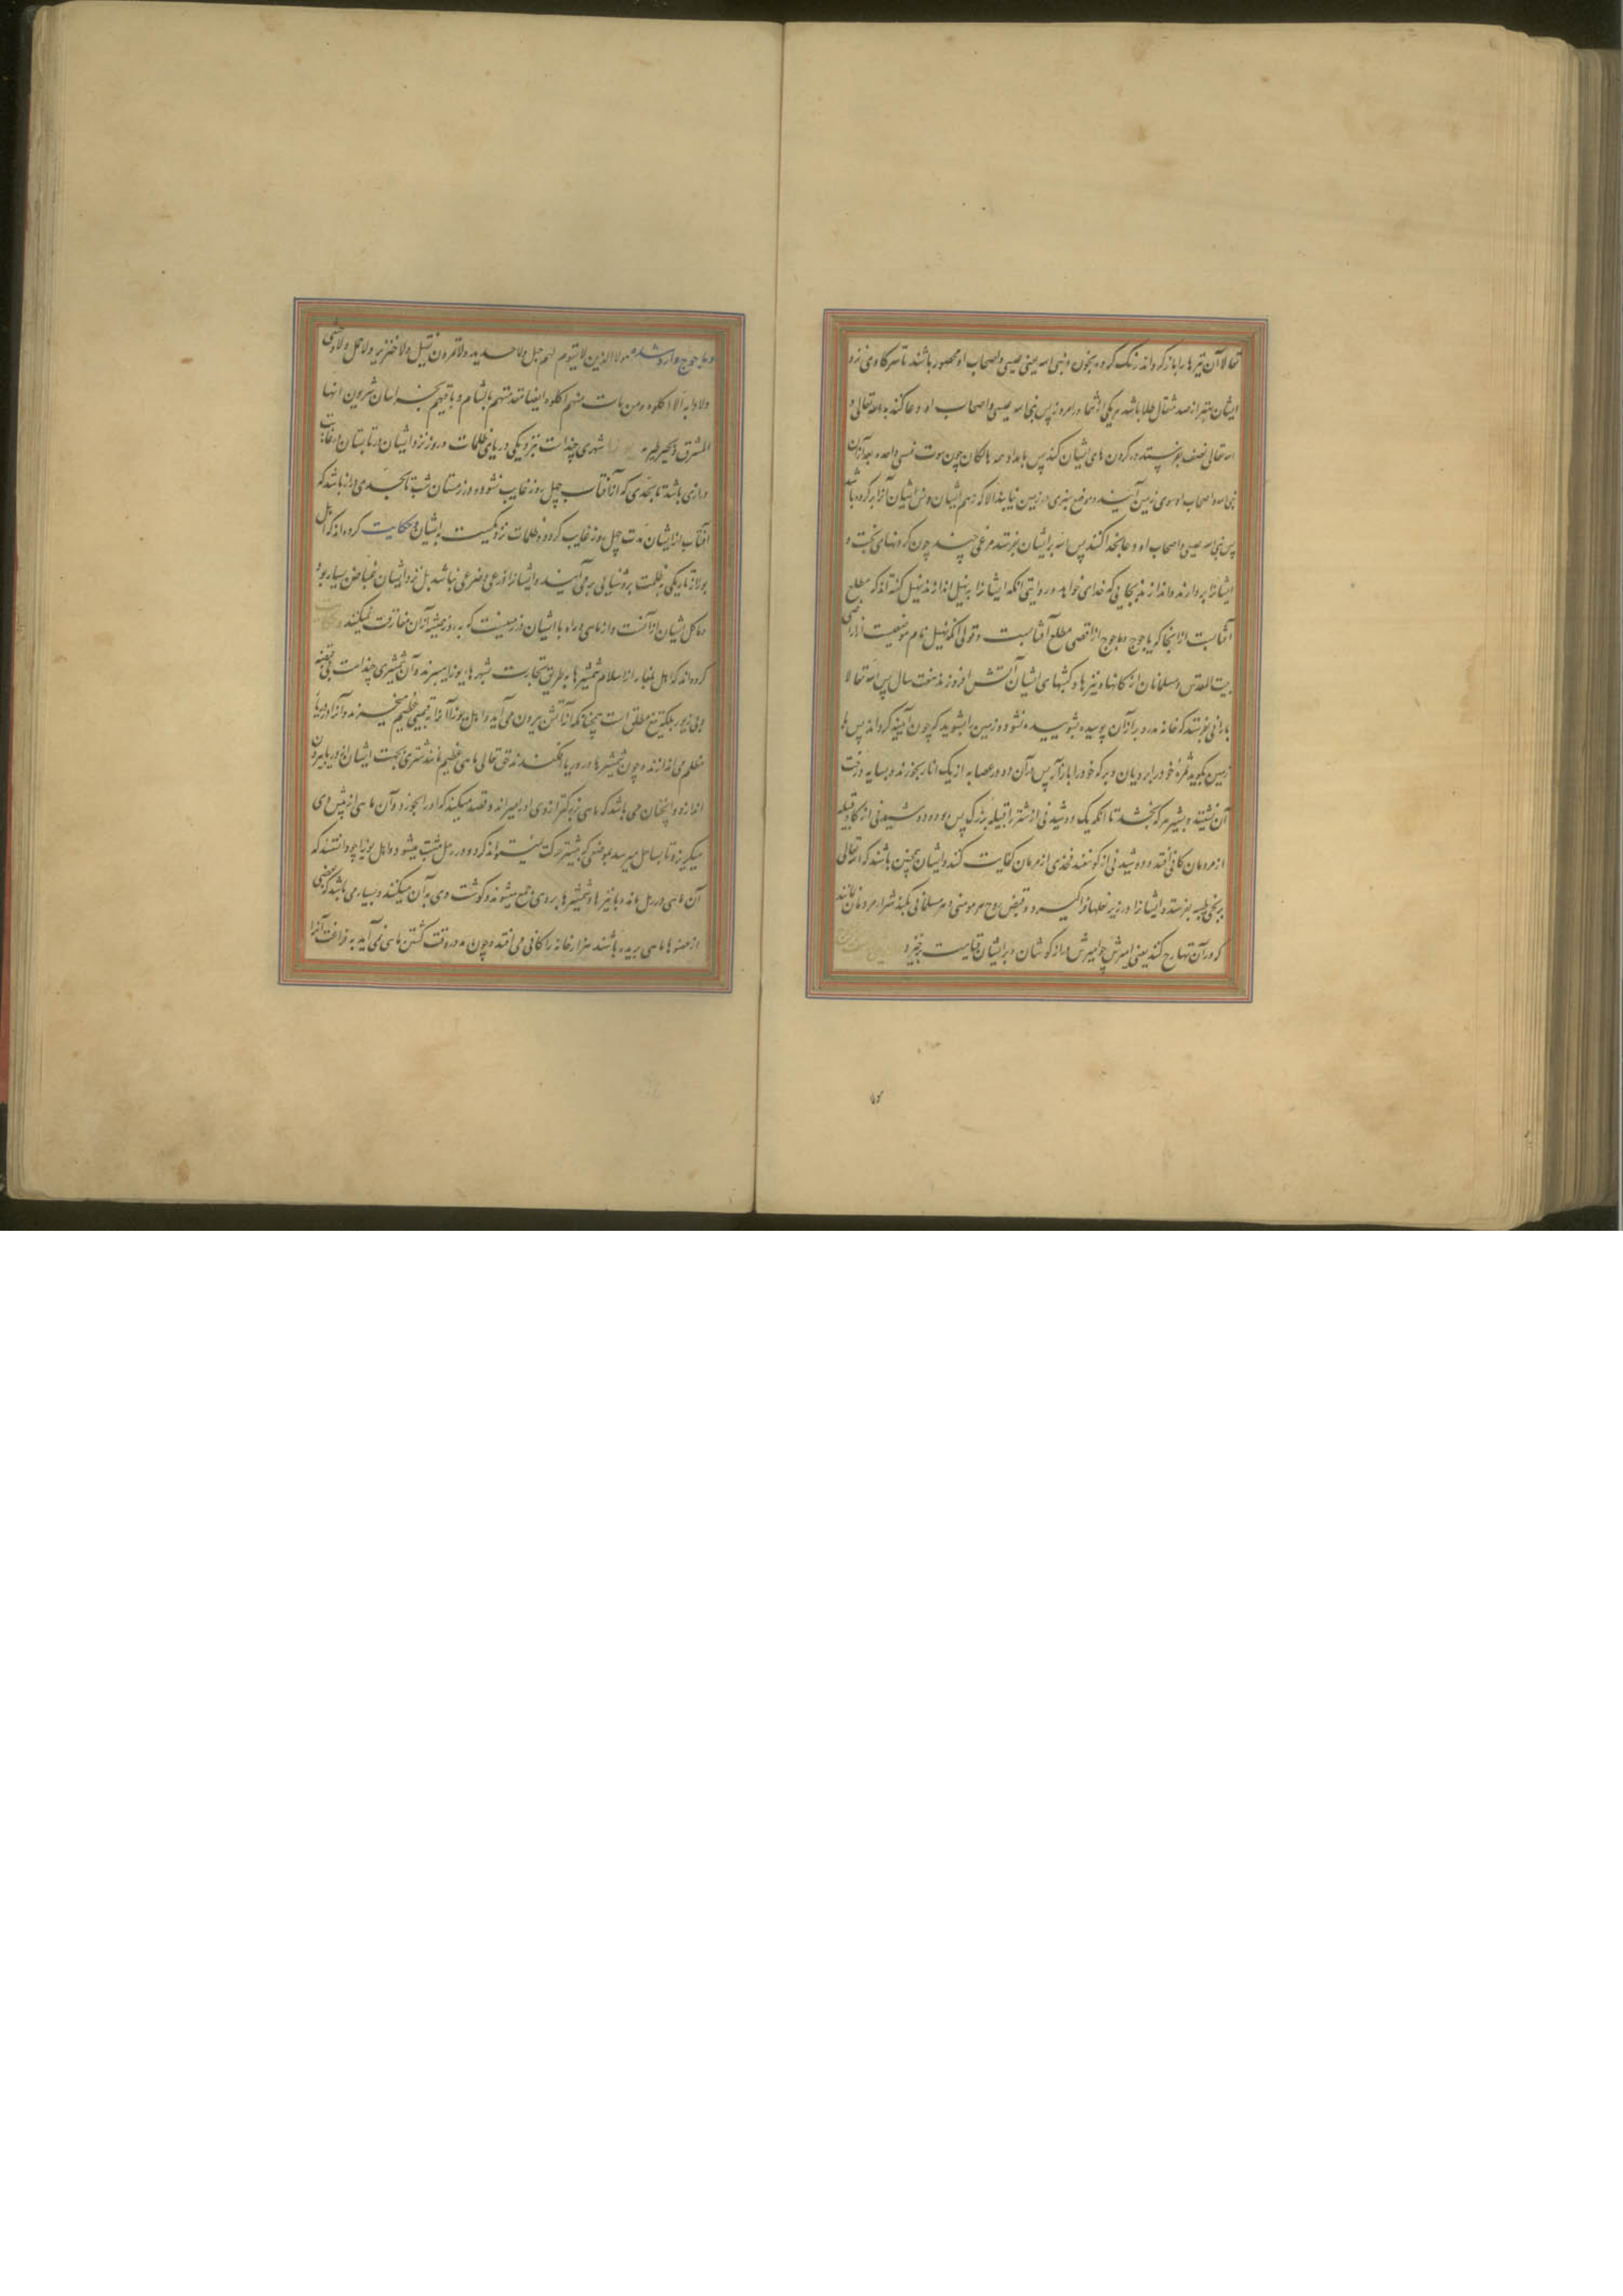 تعالا آن تیرها را باز گرداند رنگ کرده بخون و نبی الله یعنی عیسی و اصحاب او محصور باشند تا سر گاوی نزد
ایشان بهتر از صد مثقال طلا باشد بر یکی از شما در امروز پس نبی الله عیسی و اصحاب او دعا کنند به الله تعالی و
الله تعالی نغف بفرستد در گردن های ایشان کند پس بامداد همه هالکان چون موت نفسی واحده بعد از آن
نبی الله و اصحاب او سوی زمین آیند و موضع شبری در زمین نیابند الا که زهم ایشان و نتن ایشان آنرا پر کرده باشد
پس نبی الله عیسی و اصحاب او دعا بخدا کنند پس الله بر ایشان بفرستد مرغی چند چون گردنهای بخت و
ایشانرا بردارند و اندازند بجایی که خدای خواهد و در روایتی آنکه ایشانرا به نهبل اندازند نهبل گفته اند که مطلع
آفتابست از آنجا که یاجوج و ماجوج از اقصی مطلع آفتابست و قولی آنکه نهبل نام موضعیست از اراضی
بیت المقدس و مسلمانان از کمانها و نیزها و کیشهای ایشان آتش افروزند هفت سال پس الله تعالا
بارانی بفرستد که خانه مدر و وبر از آن پوشیده نشود و زمین را بشوید که چون آیینه گرداند پس با
زمین بگوید ثمرهٔ خود را برویان و برکه خود را باز آر پس در آن دور عصابه از یک انار بخورند و بسایه درخت
آن نشینند و بشیر برکه بخشد تا آنکه یک دوشیدنی از شتر با قبیلهٔ بزرگ بس بود و دوشیدنی از گاو قبیله
از مردمان کافی افتد و دوشیدنی از گوسفند فخذی از مردمان کفایت کند و ایشان همچنین باشند که الله تعالی
بریحی طیبه بفرستد و ایشانرا در زیر بغلها فرا گیرد و قبض روح هر مومنی و هر مسلمانی بکند شرار مردمان مانند
که در آن تهارج کنند یعنی آمیزش چو آمیزش دراز گوشان و بر ایشان قیامت خیزد
و ماجوج وارد شده هولا الذین لا یقوم لهم جبل ولا حدید ولا تمرون بفیل ولا خنزیر ولا جمل ولا وحشی
ولا دابه الا اکلوه و من مات منهم اکلوه ایضا مقدمتهم بالشام و ساقیهم بخراسان یشربون انهار
المشرق و بحیره طبریه شهری چند است بنزدیکی دریای ظلمات و روز نزد ایشان در تابستان در غایت
درازی باشد تا بحدی که آفتاب چهل روز غایب نشود و در زمستان شب تا بحدی دراز باشد که
آفتاب از ایشان مدت چهل روز غایب گردد و ظلمات نزدیکست بایشان و حکایت کرده اند که اهل
بولار تاریکی ظلمت بروشنایی بر می آیند و ایشانرا زرعی و ضرعی نباشد بل نزد ایشان غیاض بسیار بود
و ماکل ایشان از آنست و از ماهی و راه با ایشان در زمینیست که به روز همیشه آن مفارقت نمیکند و حکایت
کرده اند که اهل بلغار از اسلام شمشیرها بطریق تجارت بشهرهای یوره میبرند و آن شمشیری چند است بی قبضه
و بی زیور بلکه تیغ مطلق است چنانکه از آتش بیرون می آید و اهل یوره آنرا بقیمتی عظیم میخرند و آنرا در دریای
مظلم می اندازند و چون شمشیرها در دریا افکنند حق تعالی ماهی عظیم مانند شتری بجهت ایشان از دریا بیرون
اندازد و اینچنان می باشد که ماهی بزرگتر از وی او را میراند و قصد میکند که او را بخورد و آن ماهی از پیش وی
میگریزد تا بساحل میرسد بموضعی که بیشتر حرکت نمیتواند کرد و در رمل مثبت میشود و اهل یوره چو دانستند که
آن ماهی در رمل ماند با نیزها و شمشیرها بر وی جمع میشوند و گوشت وی بر آن میکنند و بسیار می باشد که بعضی
از عضوها ماهی بریده باشند هزار خانه را کافی می افتد و چون مد در وقت کشتن ماهی نمی آید به فراغت آنرا